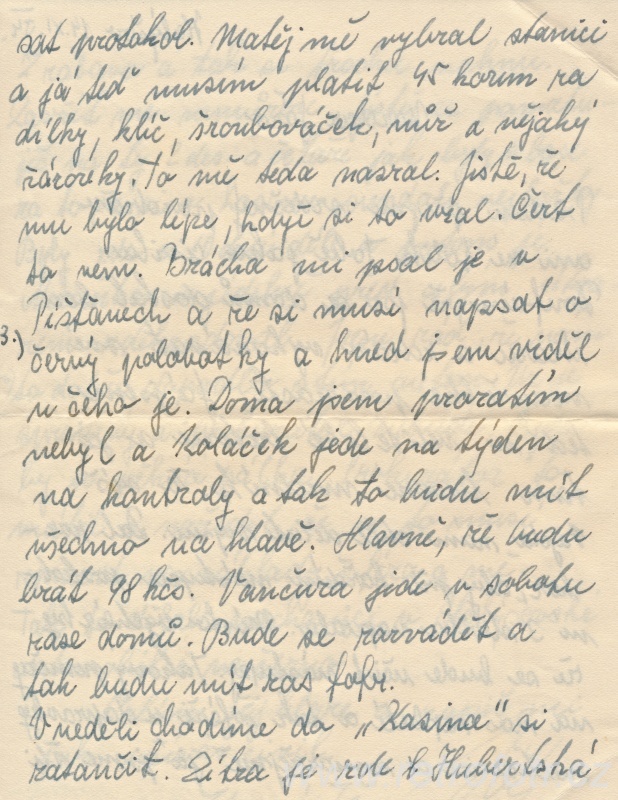 sat protokol. Matěj mě vybral stanici
a já teď musím platit 45 korun za
dílky, klíč, šroubováček, nůž a nějaký
žárovky. To mě teda nasral. Jistě, že
mu bylo lépe, když si to vzal. Čert
to vem. Brácha mi psal je v
Píšťanech a že si musí napsat o
3.) černý polobotky a hned jsem viděl
u čeho je. Doma jsem prozatím
nebyl a Koláček jede na týden
na kontroly a tak to budu mít
všechno na hlavě. Hlavně, že budu
brát 98 kčs. Vančura jede v sobotu
zase domů. Bude se rozvádět a
tak budu mít zas fofr.
V neděli chodíme do „Kasina" si
zatančit. Zítra je zde t. Hubertská